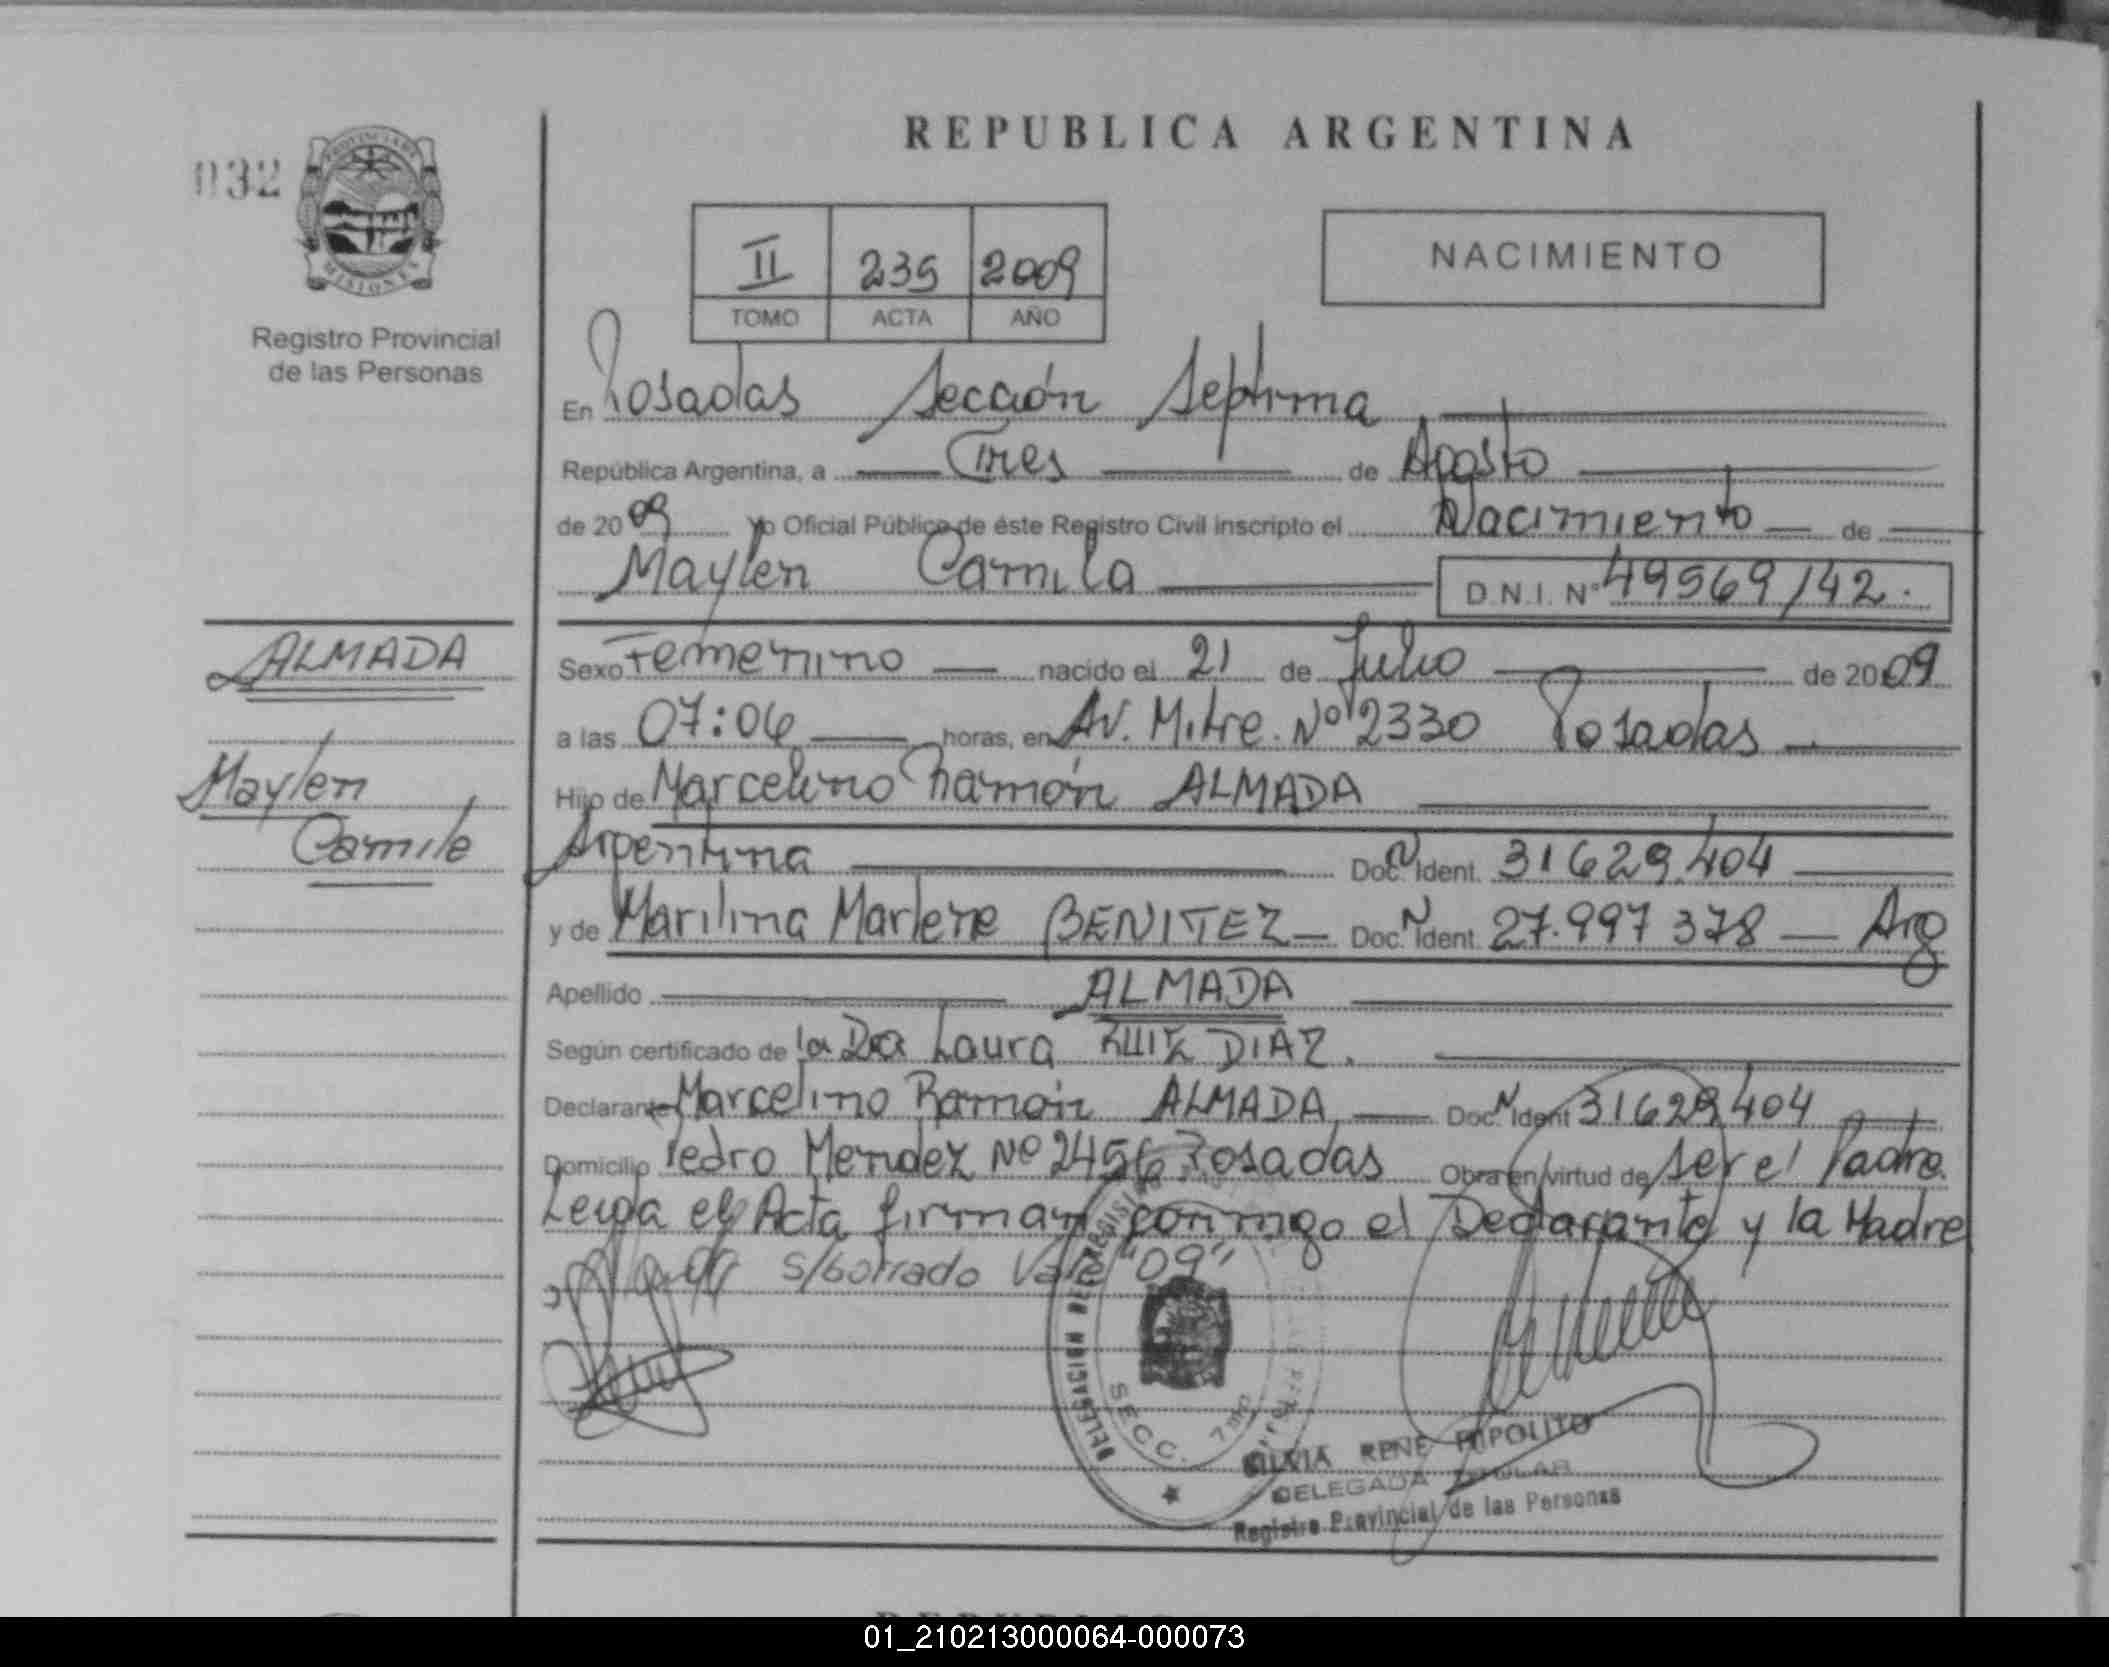 REPUBLICA ARGENTINA
032
PROVINCIA DE
MISIONES
Registro Provincial
de las Personas
II 239 2009
TOMO ACTA AÑO
NACIMIENTO
En Posadas Sección Septima
República Argentina, a Tres de Agosto
de 2009 Yo Oficial Público de éste Registro Civil inscripto el Nacimiento de
Maylen Camila D.N.I. Nº 49569142.
ALMADA
Maylen
Camila
Sexo Femenino nacido el 21 de Julio de 2009
a las 07:06 horas, en Av. Mitre. Nº 2330 Posadas
Hijo de Marcelino Ramón ALMADA
Argentina Doc. Ident. 31629.404
y de Marilina Marlene BENITEZ Doc. Ident. 27.997 378 Arg
Apellido ALMADA
Según certificado de la Dra Laura RUIZ DIAZ.
Declarante Marcelino Ramón ALMADA Doc. Ident 31629404
Domicilio Pedro Mendez Nº 2456 Posadas Obra en virtud de ser el Padre.
Leida el Acta firman conmigo el Declarante y la Madre
S/borrado Vale "09"
DELEGACION DE REGISTRO
SECC. 7ma
SILVIA RENE HIPOLITO
DELEGADA TITULAR
Registro Provincial de las Personas
01_210213000064-000073